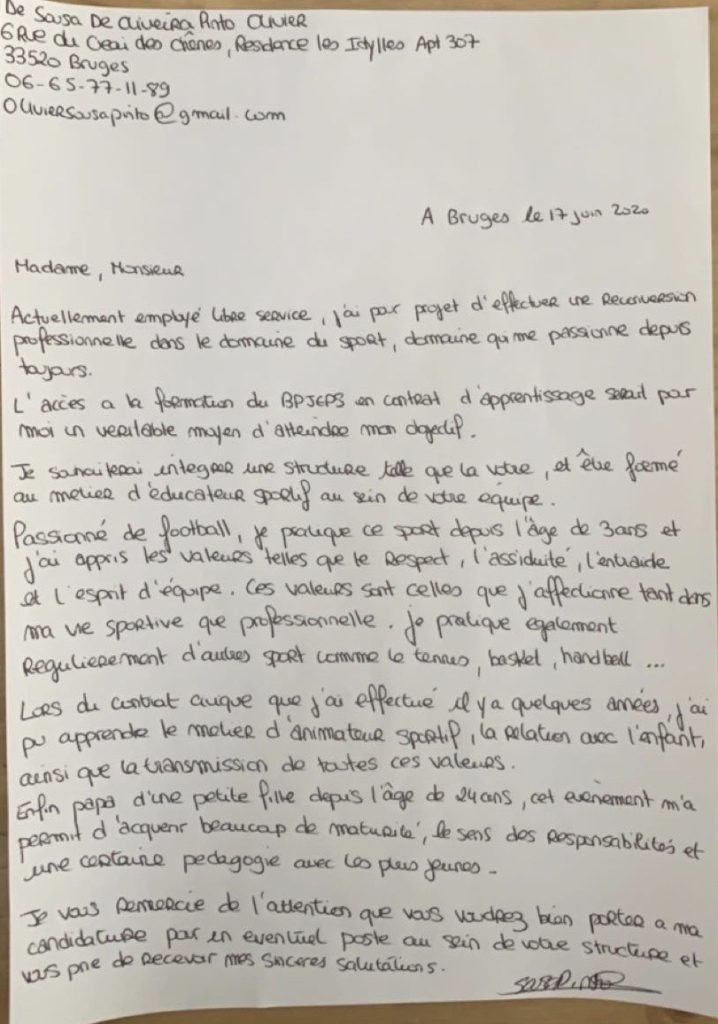 De Sousa De Oliveira Pinto Olivier
6 Rue du Geai des Chênes, Residance les Idylles Apt 307
33520 Bruges
06-65-77-11-89
Oliviersousapinto@gmail.com
A Bruges le 17 juin 2020
Madame, Monsieur
Actuellement employé libre service, j'ai par projet d'effectuer une Reconversion
professionnelle dans le domaine du sport, domaine qui me passionne depuis
toujours.
L'accès a la formation du BPJEPS en contrat d'apprentissage serait par
moi un veritable moyen d'atteindre mon objectif.
Je souhaiterai integrer une structure telle que la votre, et être formé
au metier d'éducateur sportif au sein de votre équipe.
Passionné de football, je pratique ce sport depuis l'âge de 3ans et
j'ai appris les valeurs telles que le Respect, l'assiduité, l'entraide
et l'esprit d'équipe. Ces valeurs sont celles que j'affectionne tant dans
ma vie sportive que professionnelle. Je pratique également
Regulierement d'autres sport comme le tennis, basket, handball ...
Lors du contrat civique que j'ai effectué il y a quelques années, j'ai
pu apprendre le metier d'animateur sportif, la relation avec l'enfant,
ainsi que la transmission de toutes ces valeurs.
Enfin papa d'une petite fille depuis l'âge de 24 ans, cet evènement m'a
permit d'acquerir beaucoup de maturité, le sens des Responsabilités et
une certaine pedagogie avec les plus jeunes.
Je vous Remercie de l'attention que vous voudrez bien porter a ma
candidature par un eventuel poste au sein de votre structure et
vous prie de Recevoir mes sinceres salutations.